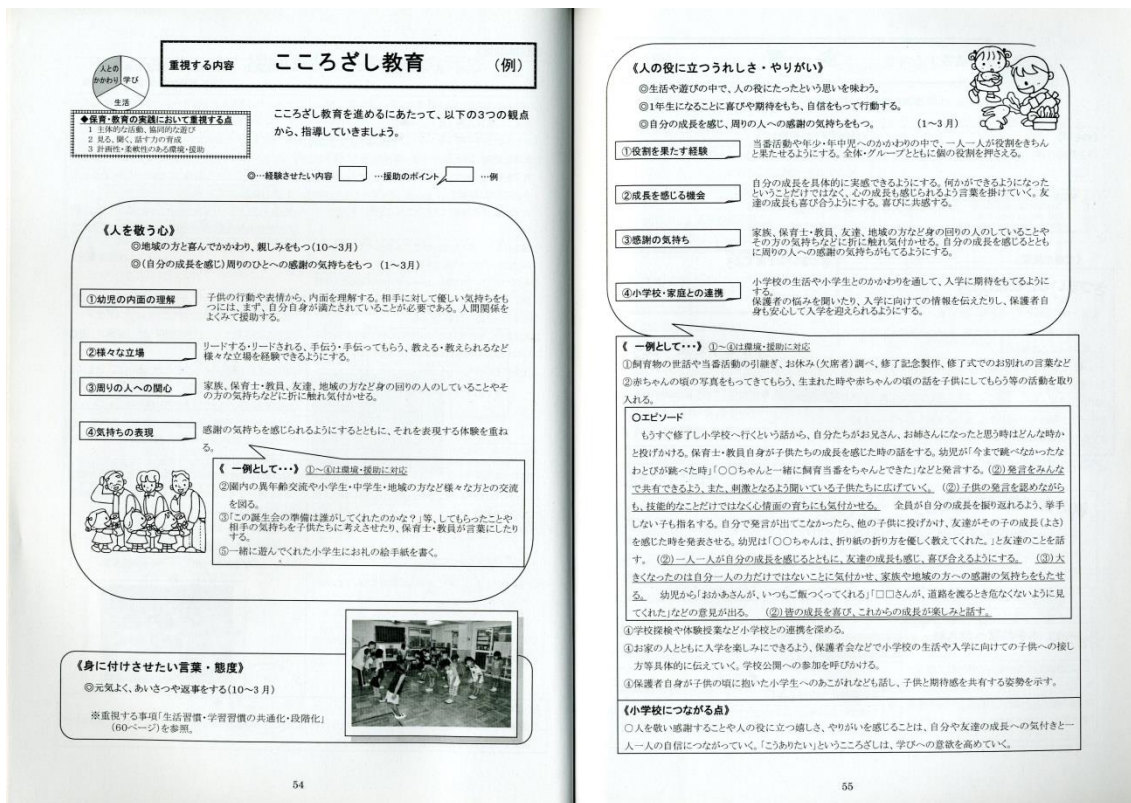 人との
かかわり
学び
生活
重視する内容 こころざし教育 (例)
◆保育・教育の実践において重視する点
1 主体的な活動、協同的な遊び
2 見る、聞く、話す力の育成
3 計画性・柔軟性のある環境・援助
こころざし教育を進めるにあたって、以下の3つの観点
から、指導していきましょう。
◎…経験させたい内容 …援助のポイント …例
《人を敬う心》
◎地域の方と喜んでかかわり、親しみをもつ(10～3月)
◎(自分の成長を感じ)周りのひとへの感謝の気持ちをもつ (1～3月)
①幼児の内面の理解
子供の行動や表情から、内面を理解する。相手に対して優しい気持ちをも
つには、まず、自分自身が満たされていることが必要である。人間関係を
よくみて援助する。
②様々な立場
リードする・リードされる、手伝う・手伝ってもらう、教える・教えられるなど
様々な立場を経験できるようにする。
③周りの人への関心
家族、保育士・教員、友達、地域の方など身の回りの人のしていることやそ
の方の気持ちなどに折に触れ気付かせる。
④気持ちの表現
感謝の気持ちを感じられるようにするとともに、それを表現する体験を重ね
る。
《 一例として・・・》 ①～④は環境・援助に対応
②園内の異年齢交流や小学生・中学生・地域の方など様々な方との交流
を図る。
③「この誕生会の準備は誰がしてくれたのかな？」等、してもらったことや
相手の気持ちを子供たちに考えさせたり、保育士・教員が言葉にしたり
する。
⑤一緒に遊んでくれた小学生にお礼の絵手紙を書く。
《身に付けさせたい言葉・態度》
◎元気よく、あいさつや返事をする(10～3月)
※重視する事項「生活習慣・学習習慣の共通化・段階化」
(60ページ)を参照。
54
《人の役に立つうれしさ・やりがい》
◎生活や遊びの中で、人の役にたったという思いを味わう。
◎1年生になることに喜びや期待をもち、自信をもって行動する。
◎自分の成長を感じ、周りの人への感謝の気持ちをもつ。 (1～3月)
①役割を果たす経験
当番活動や年少・年中児へのかかわりの中で、一人一人が役割をきちん
と果たせるようにする。全体・グループとともに個の役割を押さえる。
②成長を感じる機会
自分の成長を具体的に実感できるようにする。何かができるようになった
ということだけではなく、心の成長も感じられるよう言葉を掛けていく。友
達の成長も喜び合うようにする。喜びに共感する。
③感謝の気持ち
家族、保育士・教員、友達、地域の方など身の回りの人のしていることや
その方の気持ちなどに折に触れ気付かせる。自分の成長を感じるととも
に周りの人への感謝の気持ちがもてるようにする。
④小学校・家庭との連携
小学校の生活や小学生とのかかわりを通して、入学に期待をもてるように
する。
保護者の悩みを聞いたり、入学に向けての情報を伝えたりし、保護者自
身も安心して入学を迎えられるようにする。
《 一例として・・・》 ①～④は環境・援助に対応
①飼育物の世話や当番活動の引継ぎ、お休み(欠席者)調べ、修了記念製作、修了式でのお別れの言葉など
②赤ちゃんの頃の写真をもってきてもらう、生まれた時や赤ちゃんの頃の話を子供にしてもらう等の活動を取り
入れる。
○エピソード
もうすぐ修了し小学校へ行くという話から、自分たちがお兄さん、お姉さんになったと思う時はどんな時か
と投げかける。保育士・教員自身が子供たちの成長を感じた時の話をする。幼児が「今まで跳べなかったな
わとびが跳べた時」「○○ちゃんと一緒に飼育当番をちゃんとできた」などと発言する。(②)発言をみんな
で共有できるよう、また、刺激となるよう聞いている子供たちに広げていく。 (②)子供の発言を認めながら
も、技能的なことだけではなく心情面の育ちにも気付かせる。 全員が自分の成長を振り返れるよう、挙手
しない子も指名する。自分で発言が出てこなかったら、他の子供に投げかけ、友達がその子の成長(よさ)
を感じた時を発表させる。幼児は「○○ちゃんは、折り紙の折り方を優しく教えてくれた。」と友達のことを話
す。 (②)一人一人が自分の成長を感じるとともに、友達の成長も感じ、喜び合えるようにする。 (③)大
きくなったのは自分一人の力だけではないことに気付かせ、家族や地域の方への感謝の気持ちをもたせ
る。 幼児から「おかあさんが、いつもご飯つくってくれる」「□□さんが、道路を渡るとき危なくないように見
てくれた」などの意見が出る。 (②)皆の成長を喜び、これからの成長が楽しみと話す。
④学校探検や体験授業など小学校との連携を深める。
④お家の人とともに入学を楽しみにできるよう、保護者会などで小学校の生活や入学に向けての子供への接し
方等具体的に伝えていく。学校公開への参加を呼びかける。
④保護者自身が子供の頃に抱いた小学生へのあこがれなども話し、子供と期待感を共有する姿勢を示す。
《小学校につながる点》
○人を敬い感謝することや人の役に立つ嬉しさ、やりがいを感じることは、自分や友達の成長への気付きと一
人一人の自信につながっていく。「こうありたい」というこころざしは、学びへの意欲を高めていく。
55